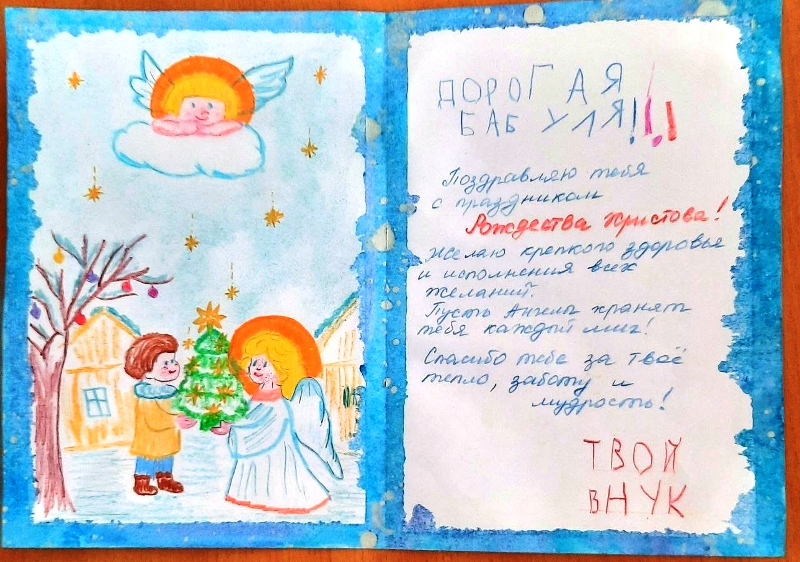 ДОРОГАЯ
БАБУЛЯ!!!
Поздравляю тебя
с праздником
Рождества Христова!
Желаю крепкого здоровья
и исполнения всех
желаний.
Пусть Ангелы хранят
тебя каждый миг!
Спасибо тебе за твоё
тепло, заботу и
мудрость!
ТВОЙ
ВНУК